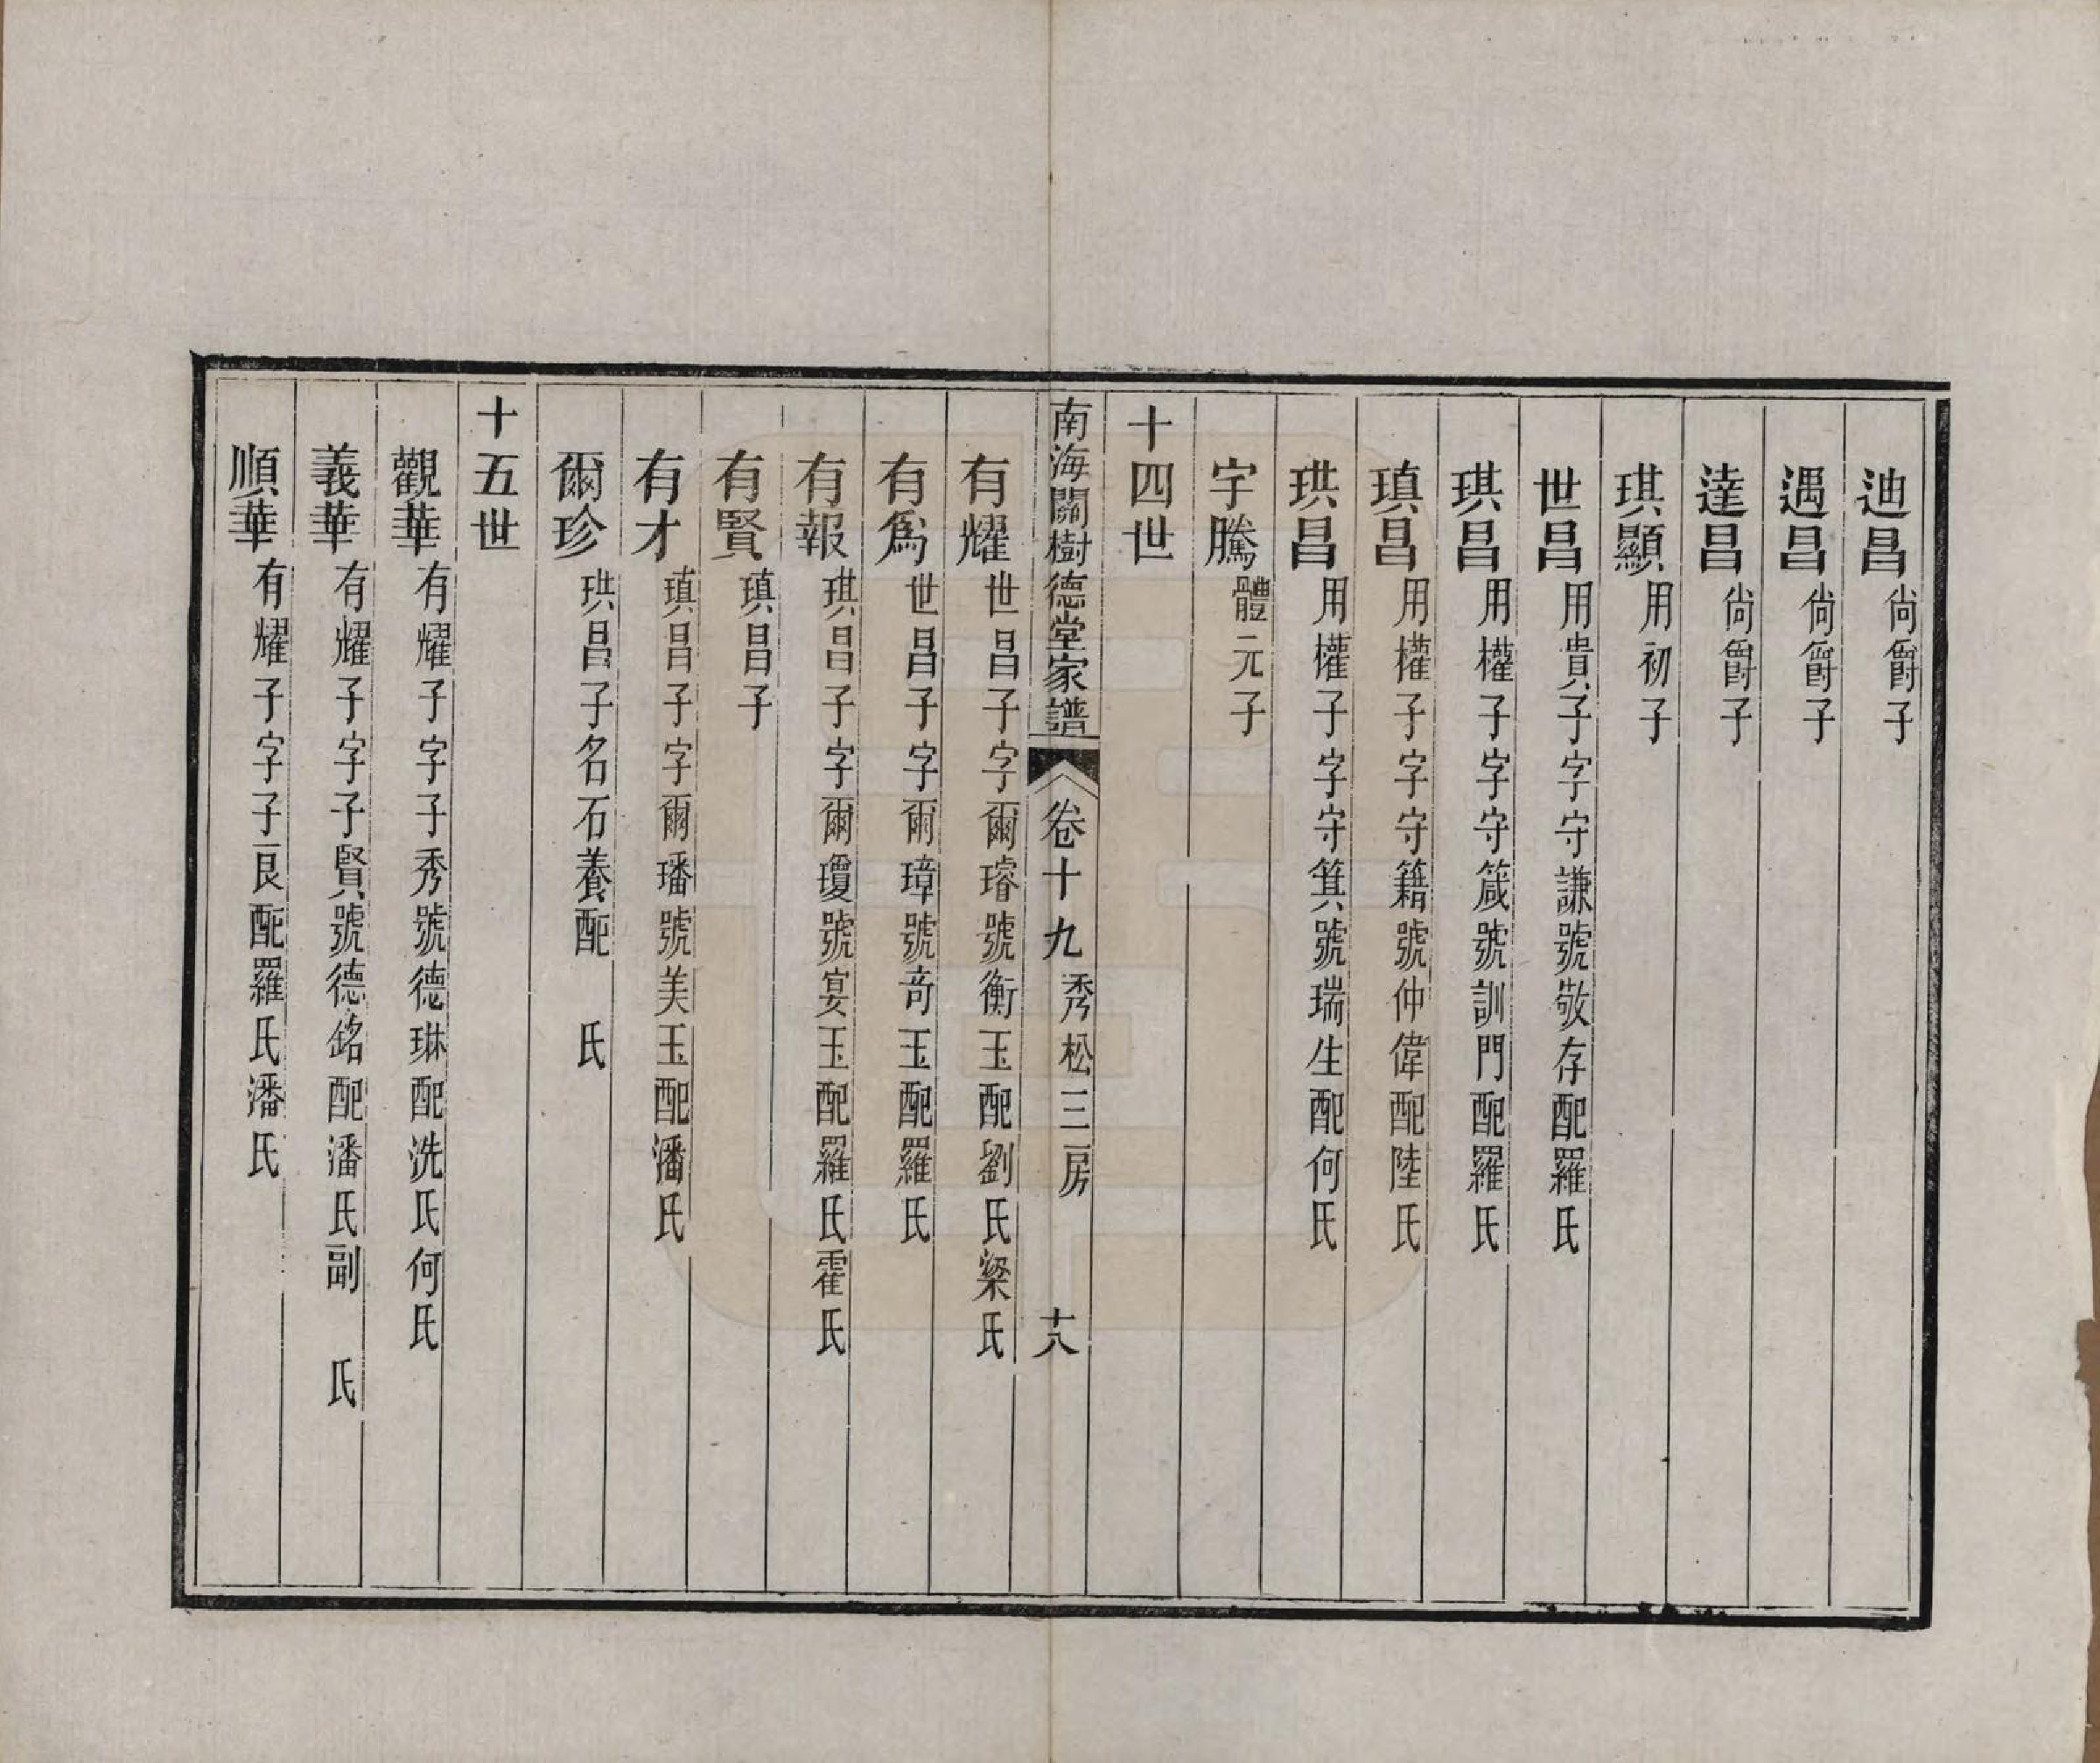 迪昌尙爵子
遇昌尙爵子
達昌尙爵子
琪顯用初子
世昌用貴子字守謙號敬存配羅氏
琪昌用權子字守箴號訓門配羅氏
瑱昌用權子字守籍號仲偉配陸氏
珙昌用權子字守箕號瑞生配何氏
宇騰體元子
十四世
南海關樹德堂家譜 卷十九 秀松三房 十八
有耀世昌子字爾璿號衡玉配劉氏梁氏
有爲世昌子字爾璋號奇玉配羅氏
有報琪昌子字爾瓊號宴玉配羅氏霍氏
有賢瑱昌子
有才瑱昌子字爾璠號美玉配潘氏
爾珍珙昌子名石養配 氏
十五世
觀華有耀子字子秀號德琳配冼氏何氏
義華有耀子字子賢號德銘配潘氏副 氏
順華有耀子字子良配羅氏潘氏